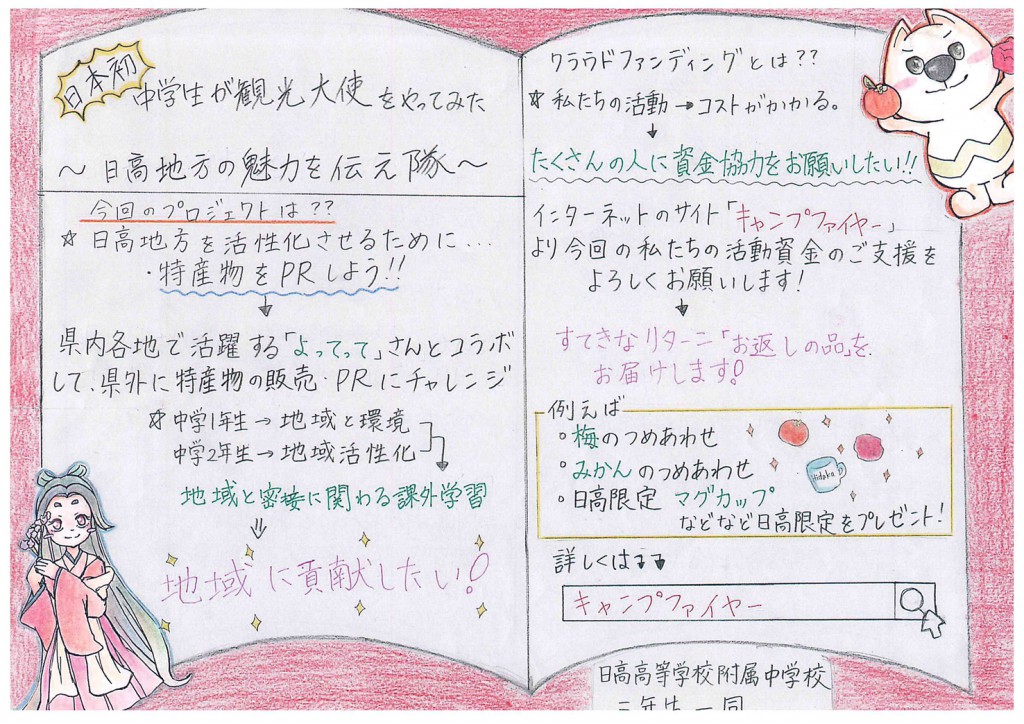 日本初
中学生が観光大使をやってみた
～日高地方の魅力を伝え隊～
今回のプロジェクトは??
☆日高地方を活性化させるために...
・特産物をPRしよう!!
↓
県内各地で活躍する「よってって」さんとコラボ
して、県外に特産物の販売・PRにチャレンジ
☆中学1年生→地域と環境
中学2年生→地域活性化
地域と密接に関わる課外学習
⇓
地域に貢献したい!
クラウドファンディングとは??
☆私たちの活動→コストがかかる。
↓
たくさんの人に資金協力をお願いしたい!!
インターネットのサイト「キャンプファイヤー」
より今回の私たちの活動資金のご支援を
よろしくお願いします!
↓
すてきなリターン「お返しの品」を
お届けします!
例えば
・梅のつめあわせ
・みかんのつめあわせ
・日高限定 マグカップ
などなど日高限定をプレゼント!
Hidaka
詳しくは↓↓
キャンプファイヤー
日高高等学校附属中学校
三年生一同